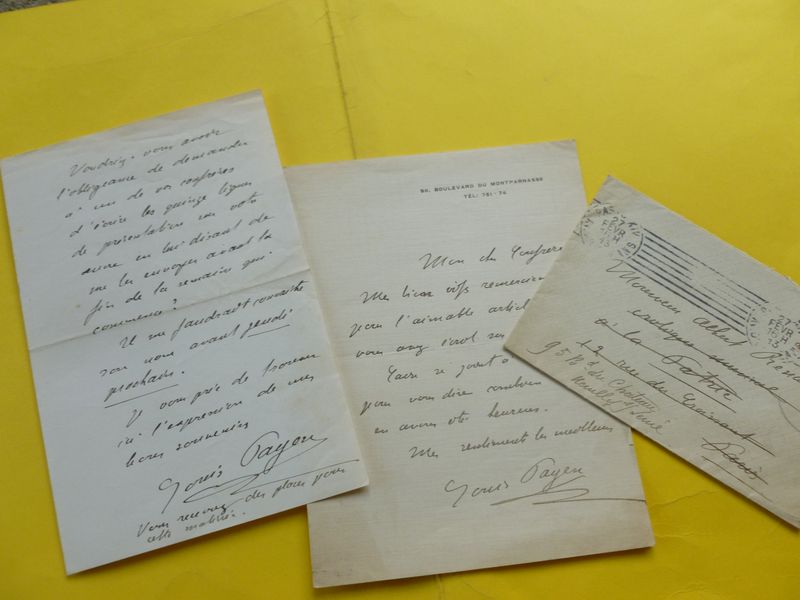 Voudriez-vous avoir
l'obligeance de demander
à un de vos confrères
d'écrire les quinze lignes
de présentation
en lui disant de
me les envoyer avant la
fin de la semaine qui
commence?
Il me faudrait connaître
son nom avant jeudi
prochain.
de trouver
ici l'expression de mes
souvenirs
Louis Payen
Vous recevrez des places pour
cette matinée.
99, BOULEVARD DU MONTPARNASSE
TÉL: 761-74
Mon cher Confrère
Mes bien vifs remerciements
pour l'aimable article
vous avez
se joint à
pour vous dire combien
en avons été heureux.
Mes sentiments les meilleurs
Louis Payen
27
FEVR
Monsieur Albert
critique musical
à la Patrie
12 rue du Croissant
Paris
95 Bd du Château
Neuilly s/ Seine